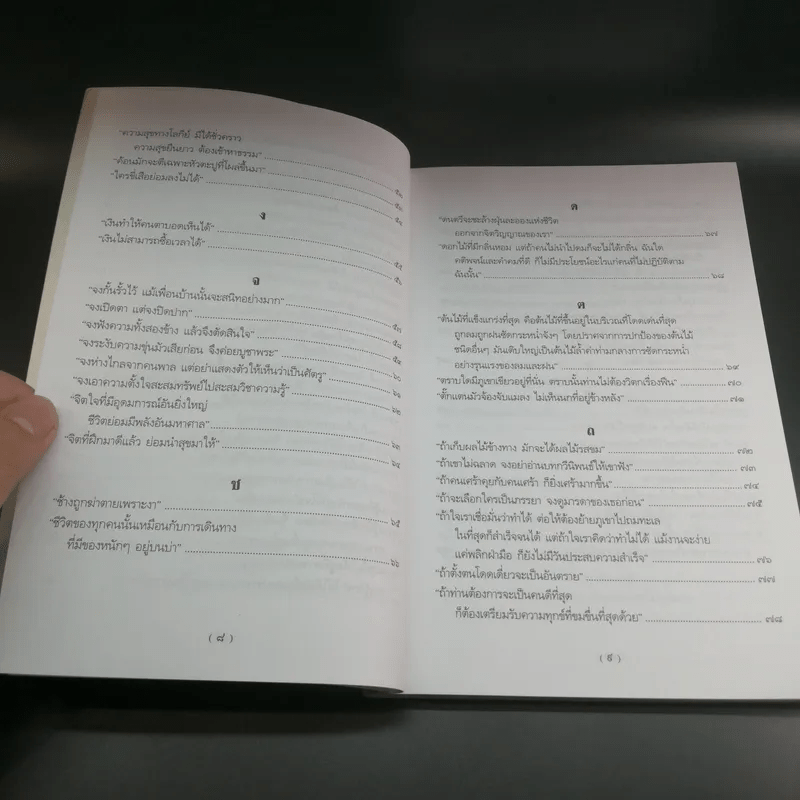 "ความสุขทางโลกีย์ มีได้ชั่วคราว
ความสุขยืนยาว ต้องเข้าหาธรรม"
"ค้อนมักจะตีเฉพาะหัวตะปูที่โผล่ขึ้นมา" ๕๓
"ใครขี่เสือย่อมลงไม่ได้" ๕๔
ง
"เงินทำให้คนตาบอดเห็นได้" ๕๕
"เงินไม่สามารถซื้อเวลาได้" ๕๖
จ
"จงกั้นรั้วไว้ แม้เพื่อนบ้านนั้นจะสนิทอย่างมาก" ๕๗
"จงเปิดตา แต่จงปิดปาก" ๕๘
"จงฟังความทั้งสองข้าง แล้วจึงตัดสินใจ"
"จงระงับความขุ่นมัวเสียก่อน จึงค่อยบูชาพระ" ๕๙
"จงห่างไกลจากคนพาล แต่อย่าแสดงตัวให้เห็นว่าเป็นศัตรู" ๖๐
"จงเอาความตั้งใจสะสมทรัพย์ไปสะสมวิชาความรู้" ๖๒
"จิตใจที่มีอุดมการณ์อันยิ่งใหญ่
ชีวิตย่อมมีพลังอันมหาศาล" ๖๓
"จิตที่ฝึกมาดีแล้ว ย่อมนำสุขมาให้" ๖๔
ช
"ช้างถูกฆ่าตายเพราะงา" ๖๕
"ชีวิตของทุกคนนั้นเหมือนกับการเดินทาง
ที่มีของหนักๆ อยู่บนบ่า" ๖๖
( ๘ )
ด
"ดนตรีจะชะล้างฝุ่นละอองแห่งชีวิต
ออกจากจิตวิญญาณของเรา" ๖๗
"ดอกไม้ที่มีกลิ่นหอม แต่ถ้าคนไม่นำไปดมก็จะไม่ได้กลิ่น ฉันใด
คติพจน์และคำคมที่ดี ก็ไม่มีประโยชน์อะไรแก่คนที่ไม่ปฏิบัติตาม
ฉันนั้น" ๖๘
ต
"ต้นไม้ที่แข็งแกร่งที่สุด คือต้นไม้ที่ขึ้นอยู่ในบริเวณที่โดดเด่นที่สุด
ถูกลมถูกฝนซัดกระหน่ำจังๆ โดยปราศจากการปกป้องของต้นไม้
ชนิดอื่นๆ มันเติบใหญ่เป็นต้นไม้ล้ำค่าท่ามกลางการซัดกระหน่ำ
อย่างรุนแรงของลมและฝน" ๖๙
"ตราบใดมีภูเขาเขียวอยู่ที่นั่น ตราบนั้นท่านไม่ต้องวิตกเรื่องฟืน" ๗๐
"ตั๊กแตนมัวจ้องจับแมลง ไม่เห็นนกที่อยู่ข้างหลัง" ๗๑
ถ
"ถ้าเก็บผลไม้ข้างทาง มักจะได้ผลไม้รสขม" ๗๒
"ถ้าเขาไม่ฉลาด จงอย่าอ่านบทกวีนิพนธ์ให้เขาฟัง" ๗๓
"ถ้าคนเศร้าคุยกับคนเศร้า ก็ยิ่งเศร้ามากขึ้น" ๗๔
"ถ้าจะเลือกใครเป็นภรรยา จงดูมารดาของเธอก่อน" ๗๕
"ถ้าใจเราเชื่อมั่นว่าทำได้ ต่อให้ต้องย้ายภูเขาไปถมทะเล
ในที่สุดก็สำเร็จจนได้ แต่ถ้าใจเราคิดว่าทำไม่ได้ แม้งานจะง่าย
แค่พลิกฝ่ามือ ก็ยังไม่มีวันประสบความสำเร็จ" ๗๖
"ถ้าตั้งตนโดดเดี่ยวจะเป็นอันตราย" ๗๗
"ถ้าท่านต้องการจะเป็นคนดีที่สุด
ก็ต้องเตรียมรับความทุกข์ที่ขมขื่นที่สุดด้วย" ๗๘
( ๙ )